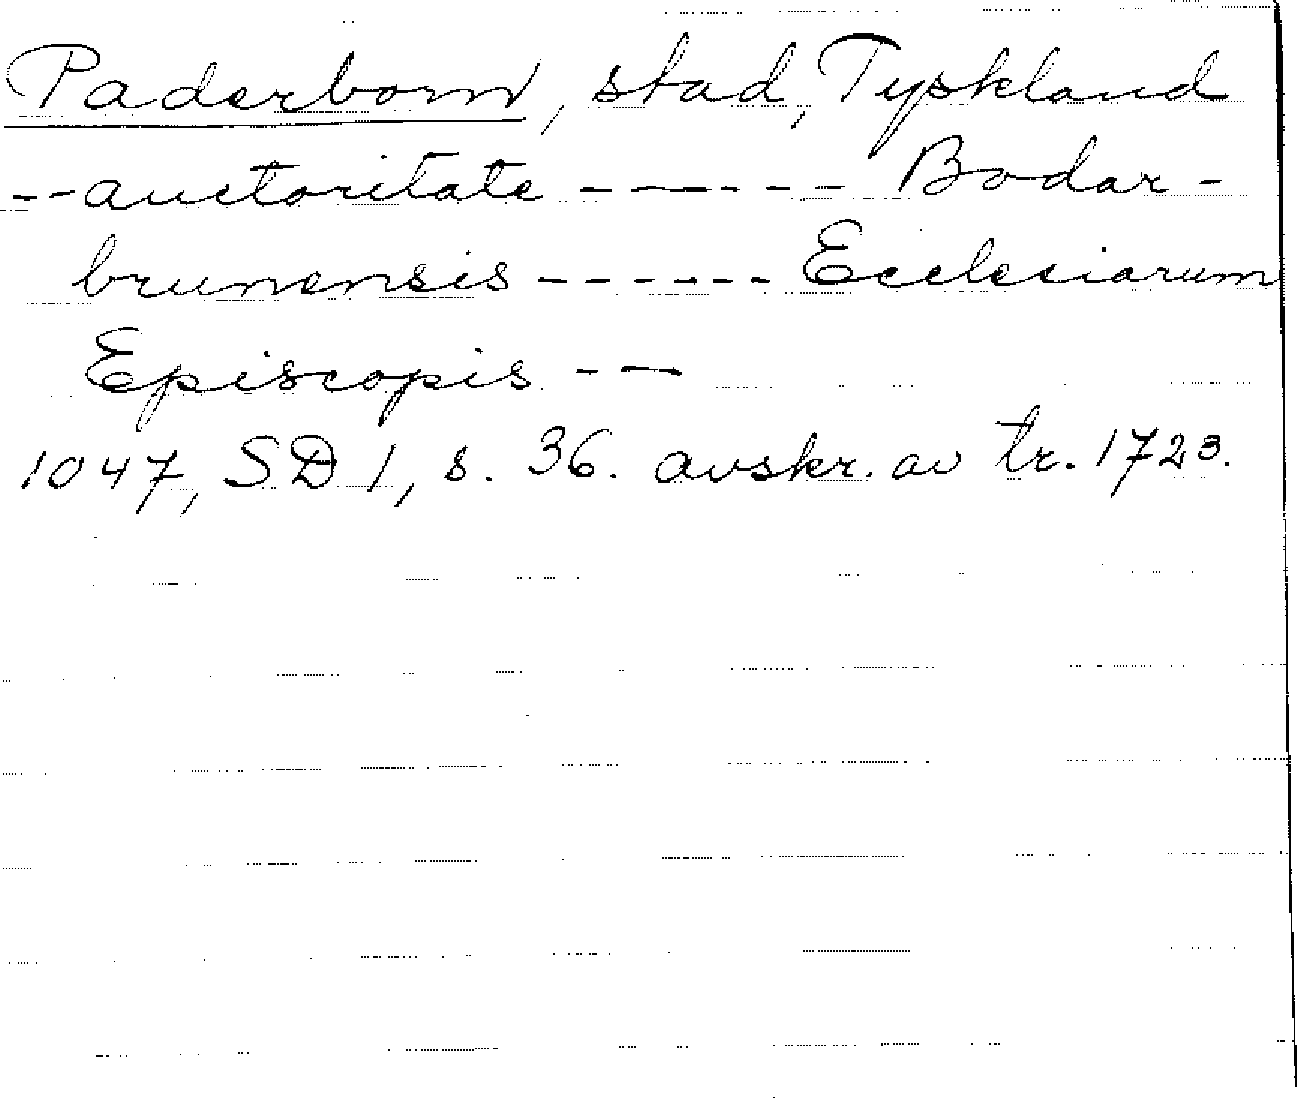 Paderborn, stad, Tyskland
-- auctoritate ------ Bodar-
brunensis ------ Ecclesiarum
Episcopis --
1047, SD 1, s. 36. avskr. av tr. 1723.